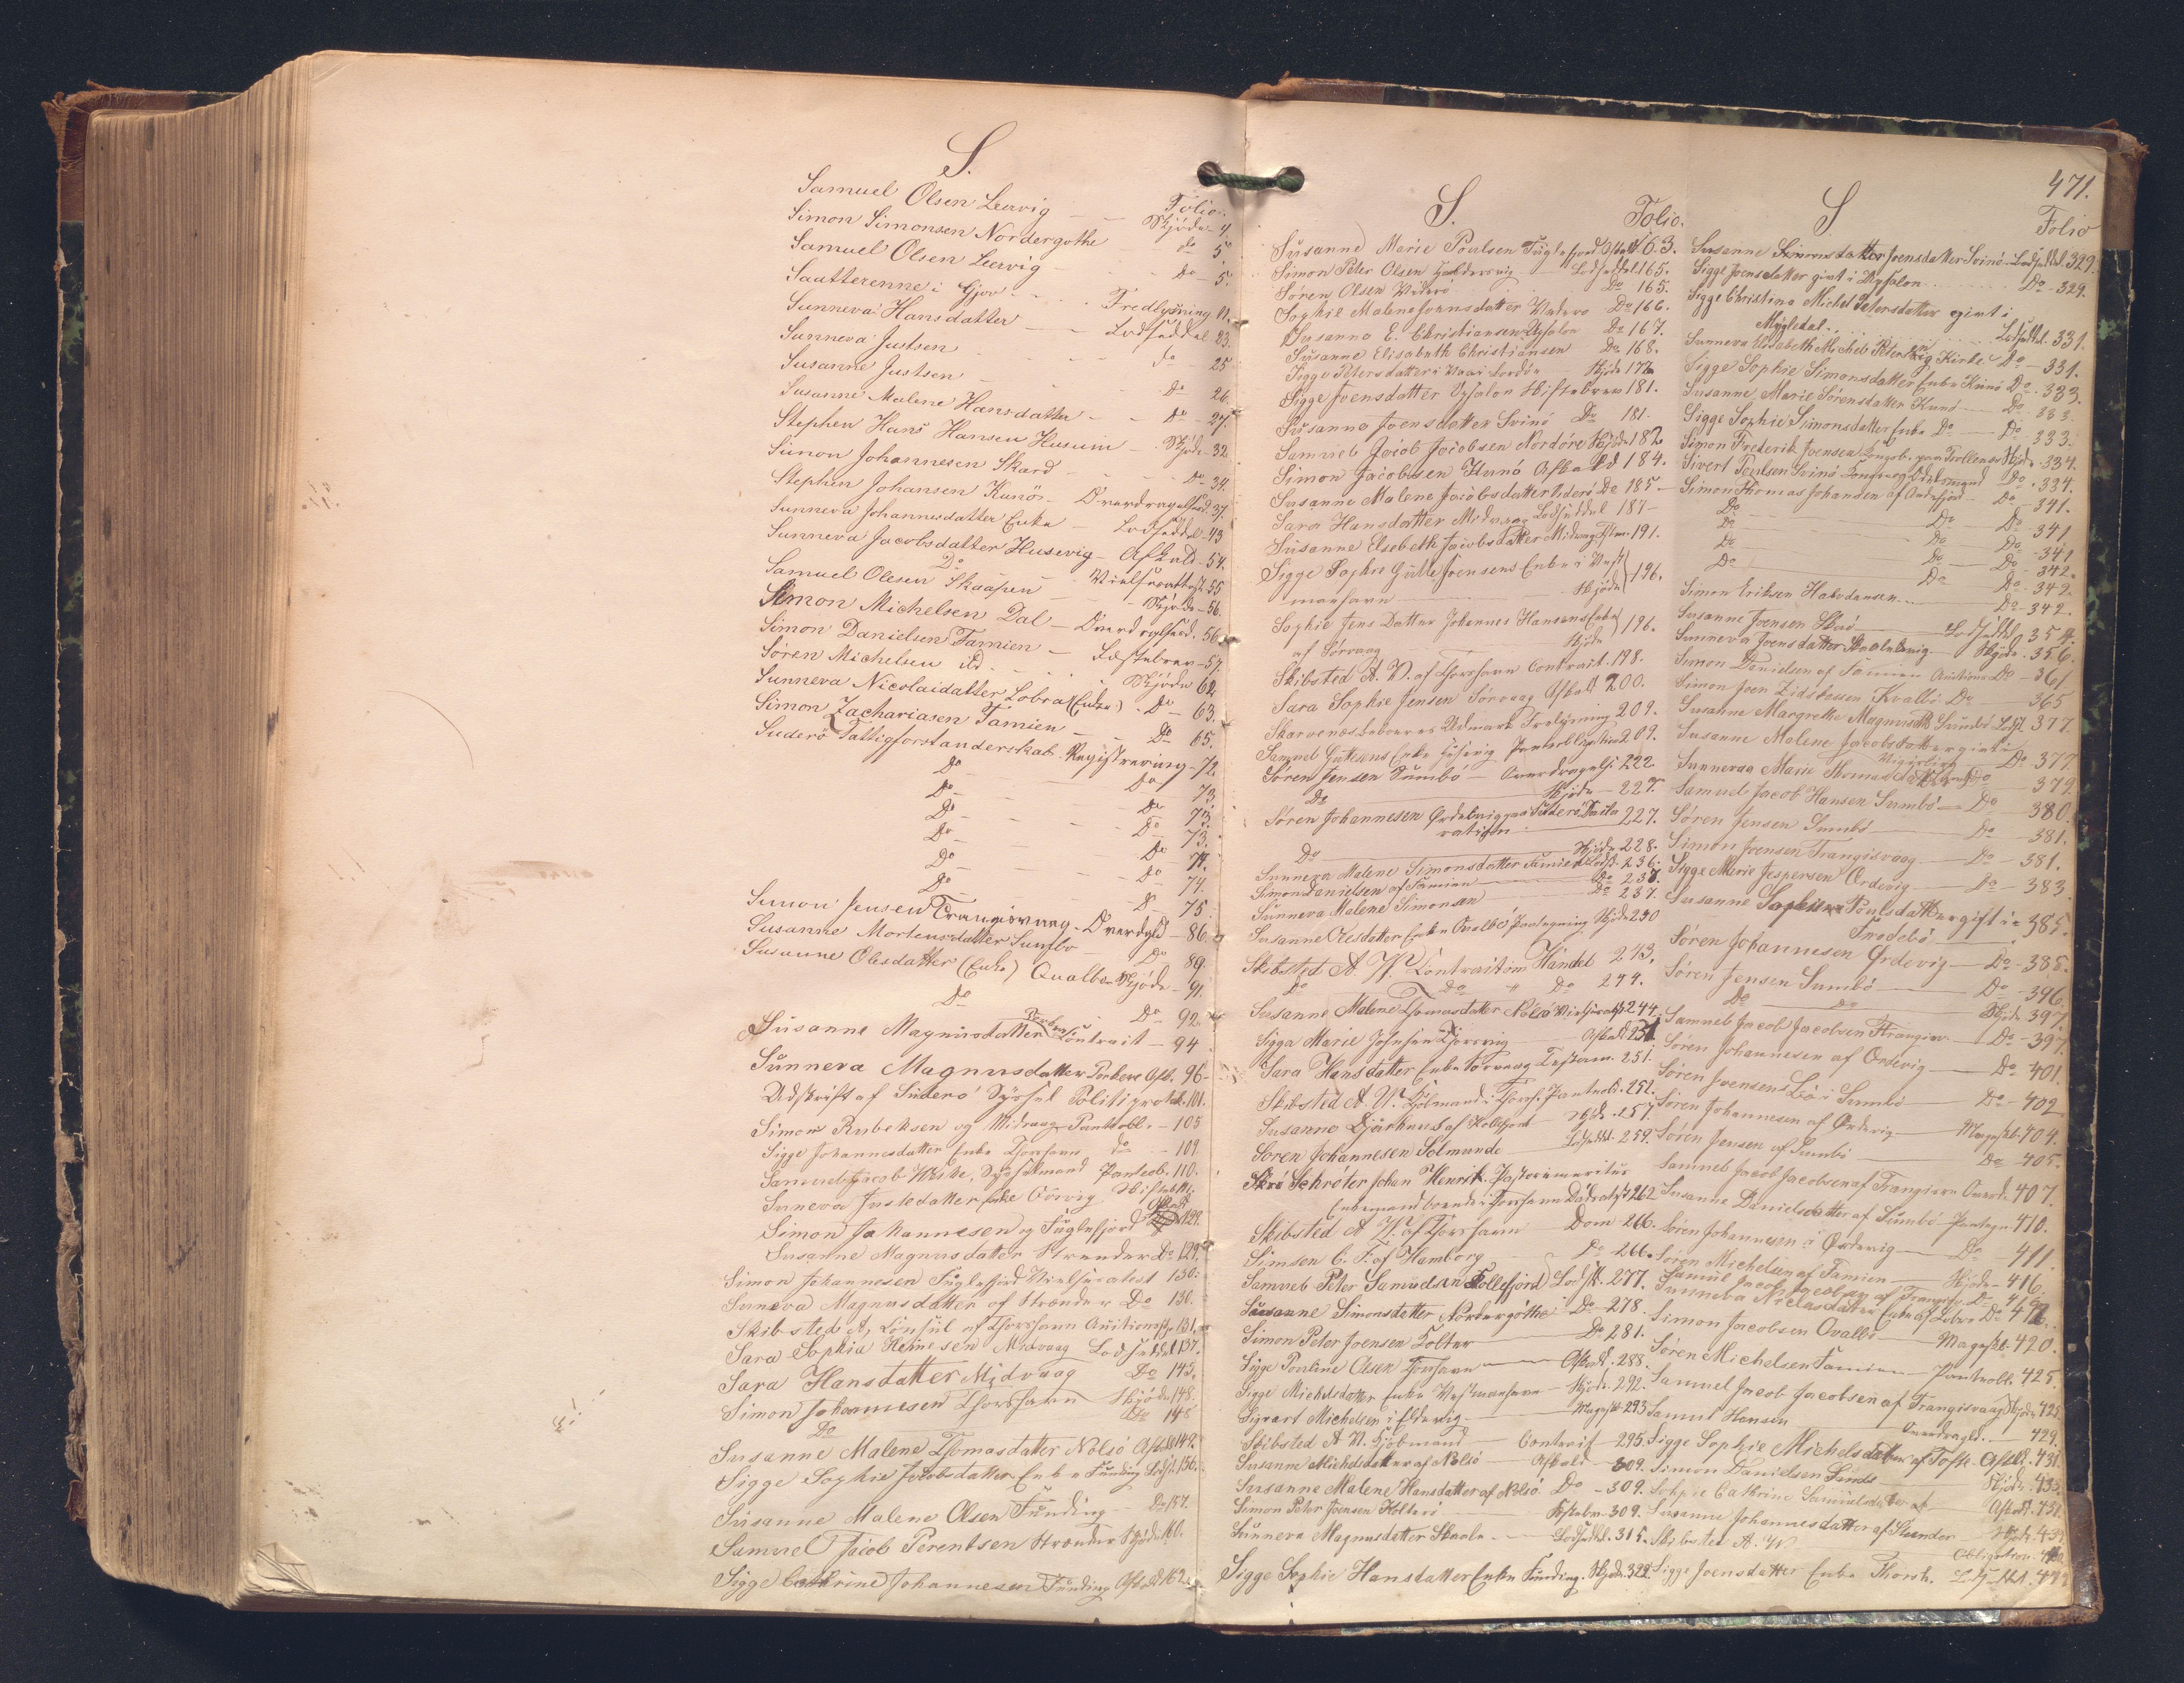 S.
Folio.
Samuel Olsen Leervig — — Skjöde 4.
Simon Simonsen Nordergøthe do 5
Samuel Olsen Leervig - - - do 5.
Sautterenne i Gjov - - - Fredlysning 11.
Sunneva Hansdatter — — Lodseddel 23.
Sunneva Justsen - - - do 25
Susanne Justsen - - - Do 26.
Susanne Malene Hansdatter - - Do 27.
Stephen Hans Hansen Husum - Skjöde 32
Simon Johannesen Skard - - - Do 34.
Stephen Johansen Kunöe - Overdragelsesd. 37.
Sunneva Johannesdatter Enke — Lodseddel 43
Sunneva Jacobsdatter Husevig - Afkald 54.
Do Vielsesattest 55
Samuel Olesen Skaapen - - - Skjöde 56.
Simon Michelsen Dal — Overdragelsesd. 56.
Simon Danielsen Famien — Fæstebrev 57.
Søren Michelsen ibd. - - Skjöde 62
Sunneva Nicolaidatter Lobra (Enke) - Do 63.
Simon Zachariasen Famien - - Do 65.
Suderö Fattigforstanderskab. Registrering 72.
Do - - Do 73.
Do - - Do 73.
Do - - Do 73.
Do - - Do 74.
Do - - Do 74.
Do - - D 75.
Simon Jensen Trangisvaag - Overdgld - 86.
Susanne Mortensdatter Sumbo - Do 89.
Susanne Olesdatter (Enke) Qualbø Skjöde - 91.
Do Do 92.
Susanne Magnusdatter Porkere Contrait - 94
Sunneva Magnusdatter Porkere Afk. 96
Udskrift af Suderö Syssel Politiprotok. 101.
Simon Rubeksen og Midvaag Panteobl. - 105
Sigge Johannesdatter Enke Thorshavn do - 109.
Samuel Jacob Weihe, Sysselmand Panteob. 110.
Suneva Justsdatter Enke Skiftebr. 111.
Simon Johannesen og Fuglefjord Afkald 129.
Susanne Magnusdatter Strender Do 129.
Simon Johannesen Fuglefjord Vielsesatest 130.
Suneva Magnusdatter af Strender Do 130.
Skibsted A, Consul af Thorshavn Auctionssk. 131.
Sara Sophia Heinesen Midvaag Lodseddel 137.
Sara Hansdatter Midvaag Do 145.
Simon Johannesen Thorshavn Skjöde 148.
Do Do 148
Susanne Malene Thomasdatter Nolsö Afkald 149.
Sigge Sophie Jacobsdatter Enke Funding Lodsd. 156.
Susanne Malene Olsen Funding Do 157.
Samuel Jacob Berentsen Strender Skjöde 160.
Sigge Cathrine Johannesen Funding Afkald 162.
S. Folio.
Susanne Marie Poulsen Fuglefjord Afkald 163.
Simon Peter Olsen Haldersvig — Lodseddel 165.
Søren Olsen Viderö Do 165.
Sophie Malene Joensdatter Viderö Do 166.
Susanna E. Christiansen Uppsalon Do 167.
Susanne Elisabeth Christiansen Do 168.
Sigge Petersdatter i Vaai Bordöe Skjöde 176
Sigge Joensdatter Upsalon Skiftebrev 181.
Susanna Joensdatter Svinö Do 181.
Samuel Jacob Jacobsen Nordöre Skjöde 182
Simon Jacobsen Kunö Afkald 184.
Susanne Malene Jacobsdatter Viderö Do 185 -
Sara Hansdatter Midvaag Lodseddel 187 -
Susanne Elsebeth Jacobsdatter Midvaag Testm. 191.
Sigge Sophie Gutte Joensens Enke i Vest
manhavn Skjöde 196.
Sophie Jens Datter Johannes Hansens Enke
af Sørvaag Skjöde 196.
Skibsted A. W. af Thorshavn Contrait. 198.
Sara Sophie Jensen Sørvaag Afkald 200.
Skarvenæsbeboeres Udmark Fredlysning 209.
Samuel Guttesens Enke Husevig Panteobligation 209.
Søren Jensen Sumbö — Overdragels. 222
Do Skjöde - 227.
Søren Johannesen Ørdevig paa Suderö Decla
ration 227.
Do Skjöde 228.
Sunneva Malene Simonsdatter Famien Lodsd. 236.
Simon Danielsen af Famien Do 237.
Sunneva Malene Simonsen Do 237.
Susanne Olesdatter Enke Qvalbö Pantegning Skjöde 230
Skibsted A. W. Contrait om Handel 243.
Do Do " Do 244.
Susanne Malene Thomasdatter Nolsö Vielsesatst 244.
Sigga Marie Johnsen Thorsvig Afkald 251
Sara Hansdatter Enke Sørvaag Testam. 251.
Skibsted A. W. Kjøbmand i Thorsh. Panteob. 252.
Susanne Djurhuus af Kollefjord Skjöd. 257.
Søren Johannesen Solmunde Lodseddel 259.
Schröter Johan Henrik Pastor imeritus
Enkemand boende i Thorshavn Dødsatst 262
Skibsted A W. af Thorshavn Dom 266.
Simsen C. F. af Hamborg Do 266.
Samuel Peter Samuelsen Kollefjord Lodsd. 277.
Susanne Simonsdatter Nordregöthe Do 278.
Simon Peter Joensen Kolter Do 281.
Sigge Pouline Olsen Thorshavn Afkald. 288.
Sigge Michelsdatter Enke Vestmanhavn Skjöde 292.
Sigvart Michelsen i Eldevig Mageskft 293
Skibsted A W. Kjöbmand Contrait - 295.
Susanne Michelsdatter af Nolsö - Afkald - 309.
Susanne Malene Hansdatter af Nolsö Do - 309.
Simon Peter Joensen Kolterö Fæstebrev 309.
Sunneva Magnusdatter Skaale Lodseddel. 315.
Sigge Sophie Hansdatter Enke Funding. Skjöde 322
471.
S Folio
Susanne Simonsdatter Joensdatter Svinö Lodseddel 329.
Sigge Joensdatter givt i Uppsalon Do - 329.
Sigge Christina Michel Petersdatter givt i
Mygledal Lodseddel. 331.
Sunneva Elisabeth Michel Petersen Kirke Do - 331.
Sigge Sophie Simonsdatter Enke Kunö Do 333.
Susanne Marie Sørensdatter Kunö Do 333.
Sigge Sophie Simonsdatter Enke Do - Do 333.
Simon Frederik Joensen Kongsb. paa Trøllenæs Skjöde 334.
Sivert Poulsen Svinö Konge- og Odelsmand Do. 334.
Simon Thomas Johansen af Andefjord Do 341.
Do Do Do 341
Do Do Do 341
Do Do Do 342.
Do Do Do 342
Simon Eriksen Haldansen Do 342.
Susanne Joensen Skaö Lodseddel 354.
Sunneva Joensdatter Skaalevig Skjöde 356.
Simon Danielsen af Famien Auctions Do - 361
Simon Joen Zidsbassen Kvalbö Do 365
Susanne Margrethe Magnusdtr Sumbö Lodsd. 377
Susanne Malene Jacobsdatter givt i
Do 377.
Sunneva Marie Thomasdatter Do 379
Samuel Jacob Hansen Sumbö Do 380
Søren Jensen Sumbö Do - 381.
Simon Joensen Trangisvaag Do - 381.
Sigge Marie Jespersen Ordevig - Do 383
Susanne Sophie Poulsdatter gift i
Frodebö 385.
Søren Johannesen Ordevig - Do 385.
Søren Jensen Sumbö Do - 396
Do Do Skjöde 397
Samuel Jacob Jacobsen Trangisv. Do 397.
Søren Johannesen af Ordevig - Do 401.
Søren Joensens Bö i Sumbö Do - 402
Søren Johannesen af Ordevig Mageskf. 404.
Søren Jensen af Sumbö Do 405.
Samuel Jacob Jacobsen af Trangisv. Overd. 407.
Susanne Danielsdatter af Sumbö Pantegn 410.
Søren Johannesen i Ordevig - Do 411
Søren Michelsen af Famien Skjöde 416
Samuel Jacob Jacobsen af Trangisv. Do
Sunneva Niclasdatter Enke af Lobra Do
Simon Jacobsen Qvalbö Mageskf. 420.
Søren Michelsen Famien Panteobl. 425
Samuel Jacob Jacobsen af Trangisvaag Skjöde 425
Samuel Hansen Overdragels. 429.
Sigge Sophie Michelsdatter af Toftе Afkald. 431
Simon Danielsen Sands Skjöde 433
Sophie Cathrine Samuelsdatter af Afkald.
Susanne Johannesdatter af Skender Skjöde
Skibsted A. W. Obligation
Sigge Joensdatter Enke Thorsh.